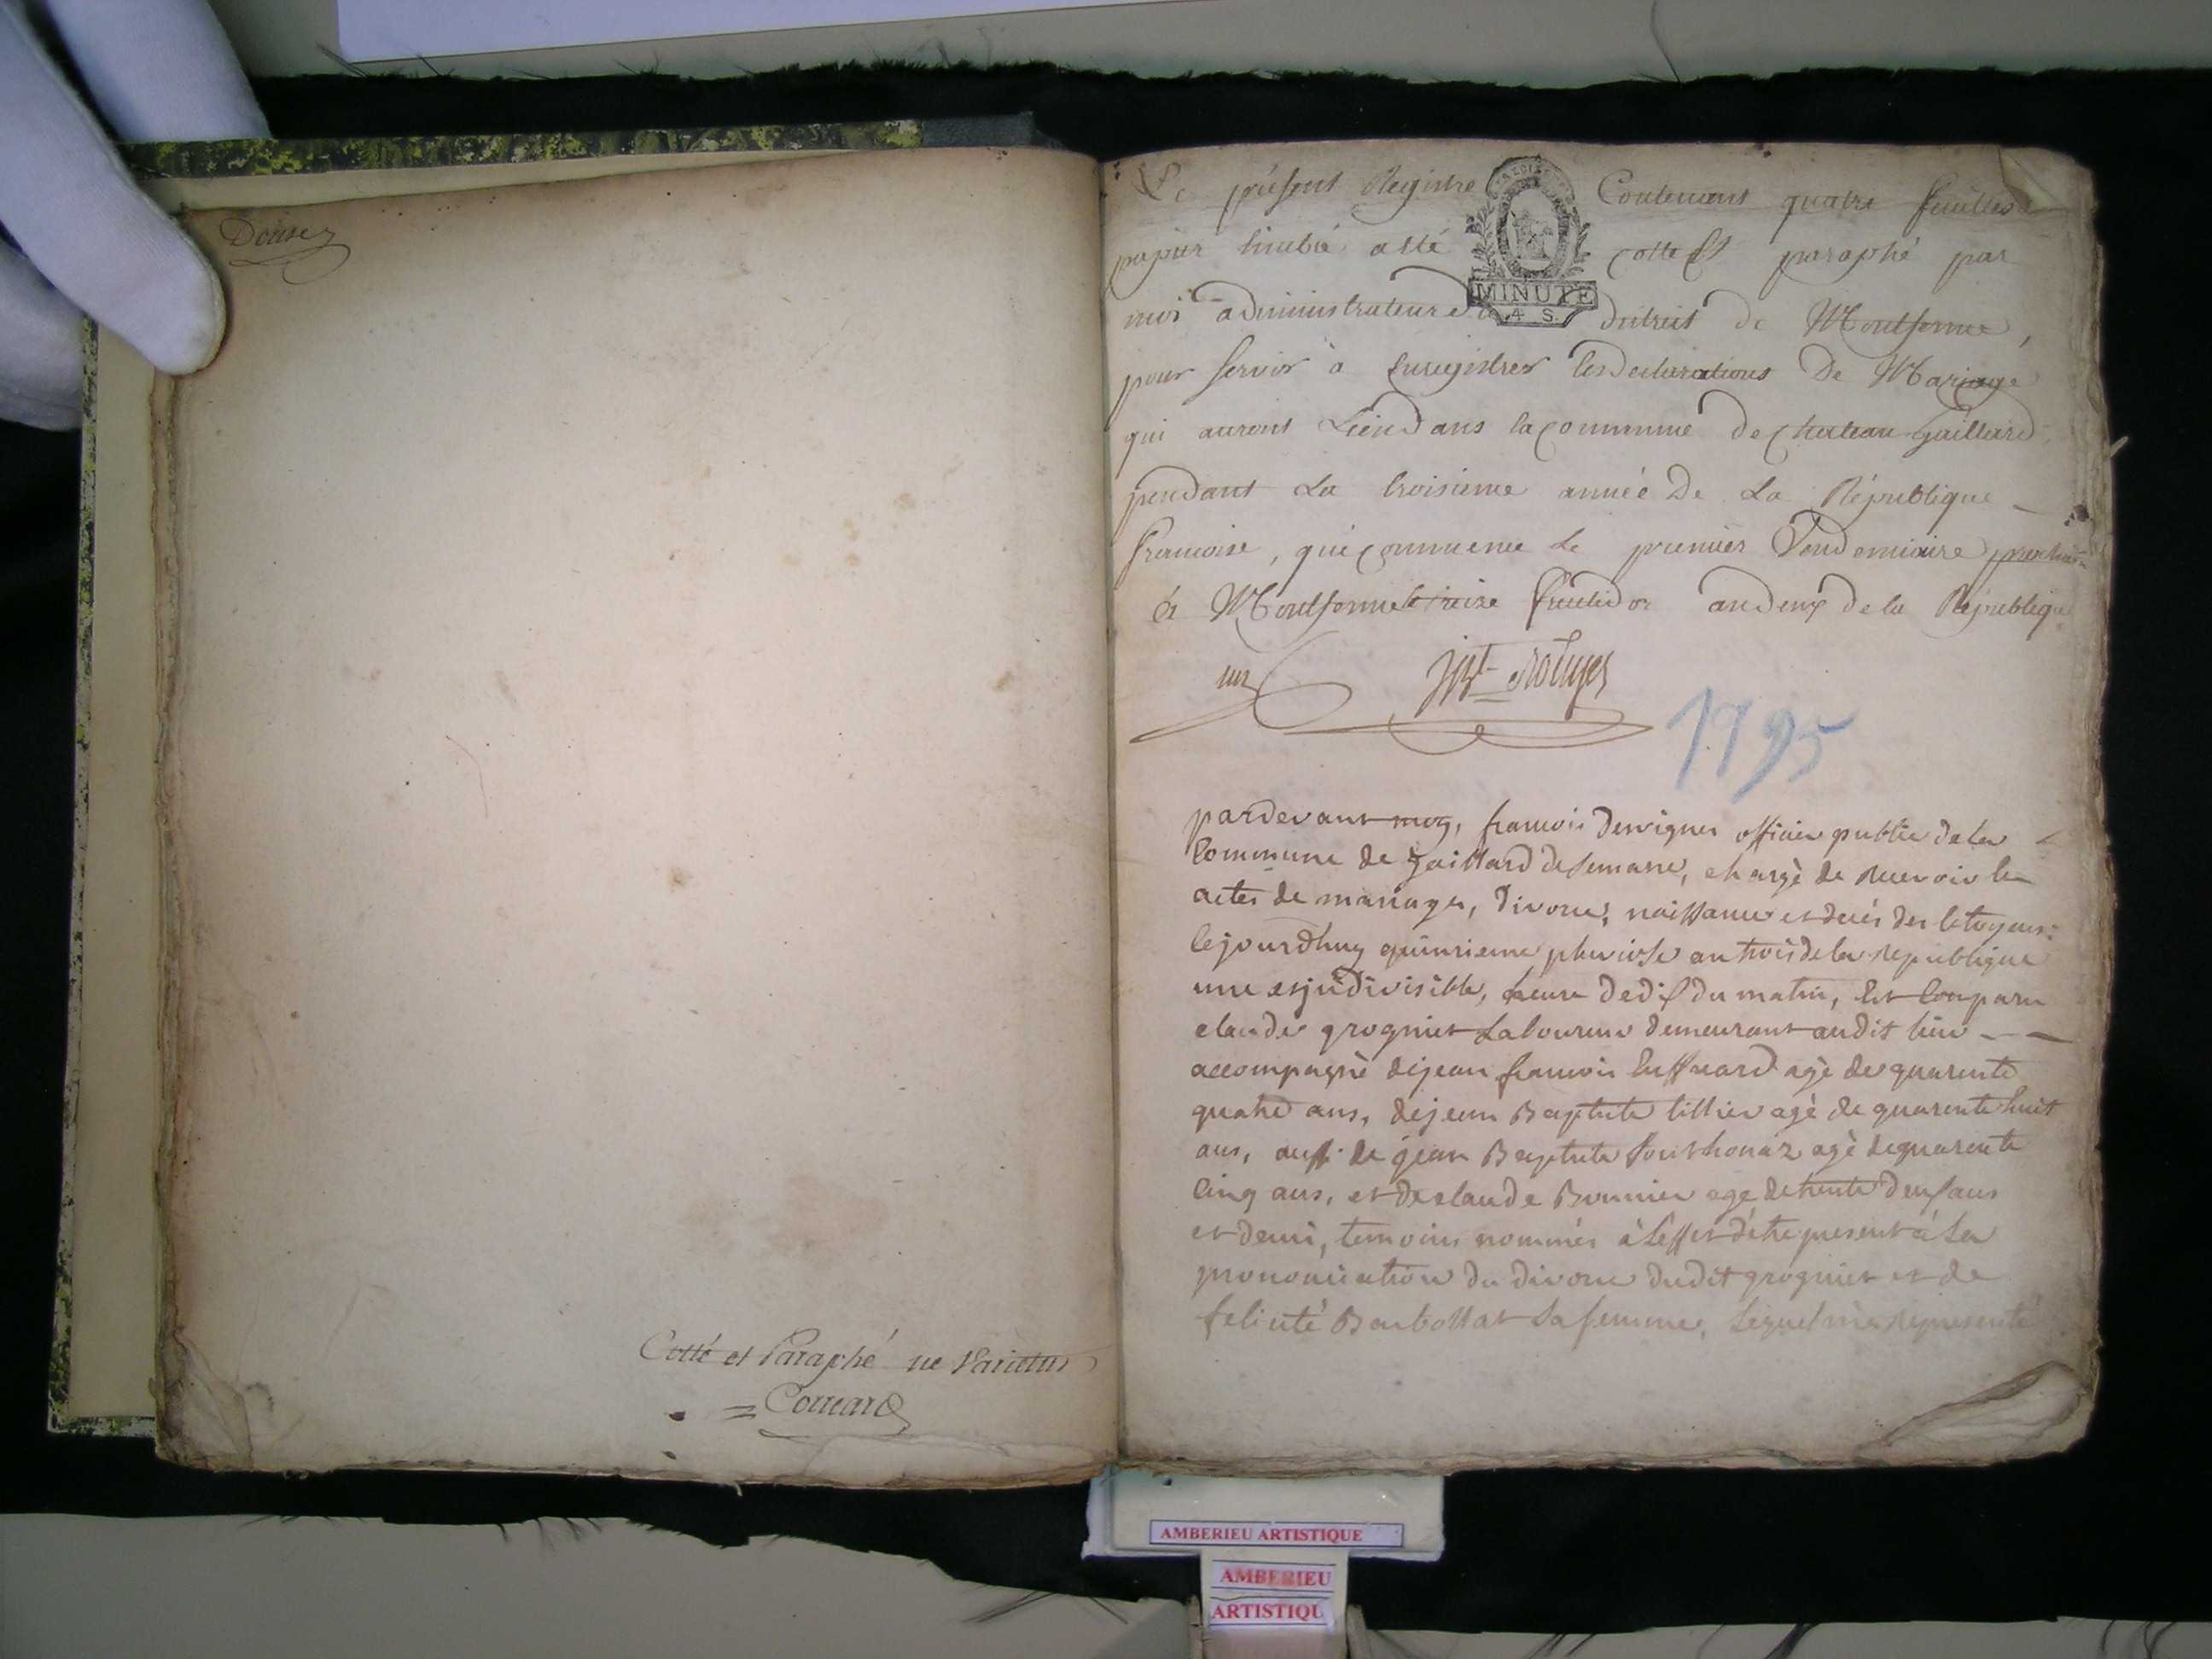 Douze
Cotté et Paraphé ne Varietur
Le présent Registre Contenant quatre feuilles
papier timbré a été cotté et paraphé par
MINUTE
4 S.
moi administrateur du district de Montferme,
pour servir à Enregistrer les declarations De Mariage
qui auront Lieu dans la commune de chateau gaillard
pendant La troisieme année De La République
francoise, qui commence Le premier Vendemiaire prochain
à Montferme le treize fructidor an deux de la République
un
1795
pardevant moy, francois officier public de la
Commune de Gaillard de semane, chargé de Recevoir les
actes de mariages, divorce, naissance et decés des Citoyens:
Cejourdhuy quinzieme pluviose an trois de la republique
une et jndivisible, heure de dix du matin, Est Comparu
claude grognet Laboureur demeurant audit lieu
accompagné de jean francois agé de quarente
quatre ans, de jean Baptiste tillier agé de quarente huit
ans, aussi de jean Baptiste agé de quarente
Cinq ans, et de claude Bonnier age de trente deux ans
et demi, temoins nommés à L'effet d'être present à La
prononciation du divorce dudit grognet et de
felicité Barbollat sa femme, Lequel m'a representé
AMBERIEU ARTISTIQUE
AMBERIEU
ARTISTIQU